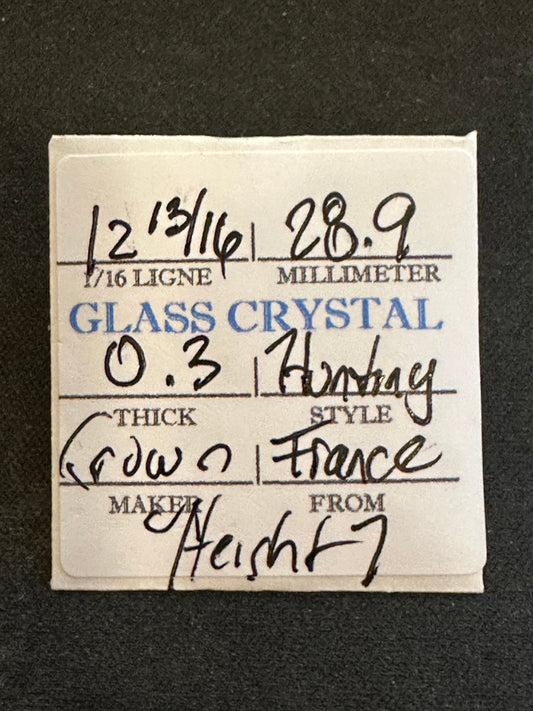 12 13/16 | 28.9
1/16 LIGNE MILLIMETER
GLASS CRYSTAL
0.3 | Hunting
THICK STYLE
Crown | France
MAKER FROM
Height 7